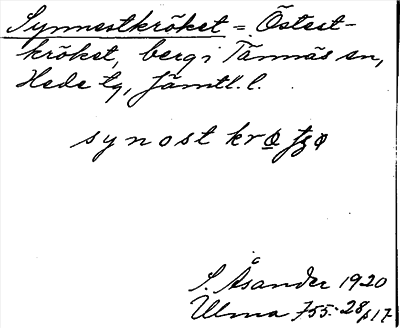 Synnestkröket = Östest-
kröket, berg i Tännäs sn,
Hede tg, Jämtl. l.
synost kr
S. Åsander 1920
Ulma 755:28 p17